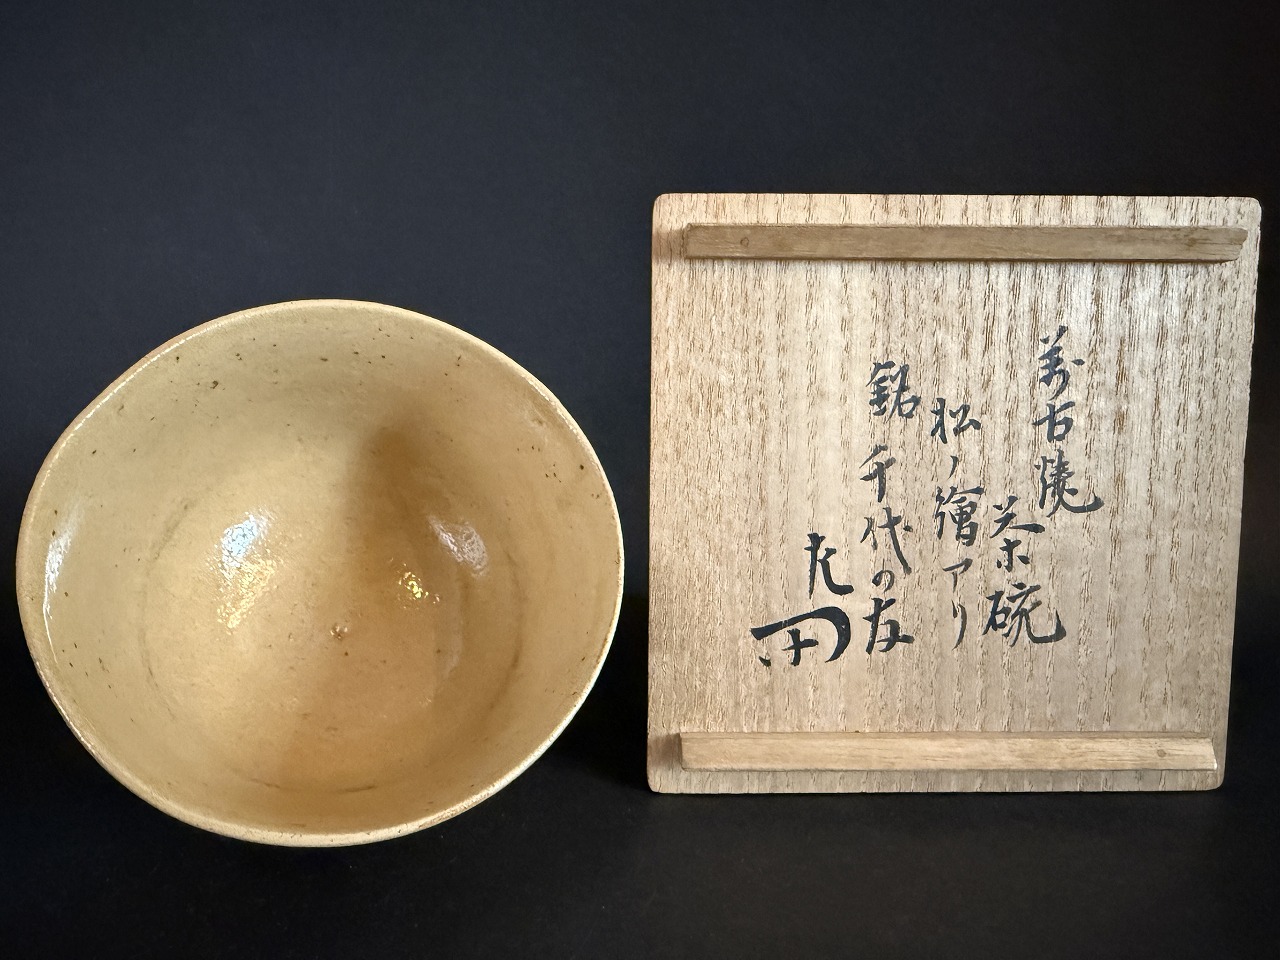 萬古焼
茶碗
松ノ繪アリ
銘 千代の友
左